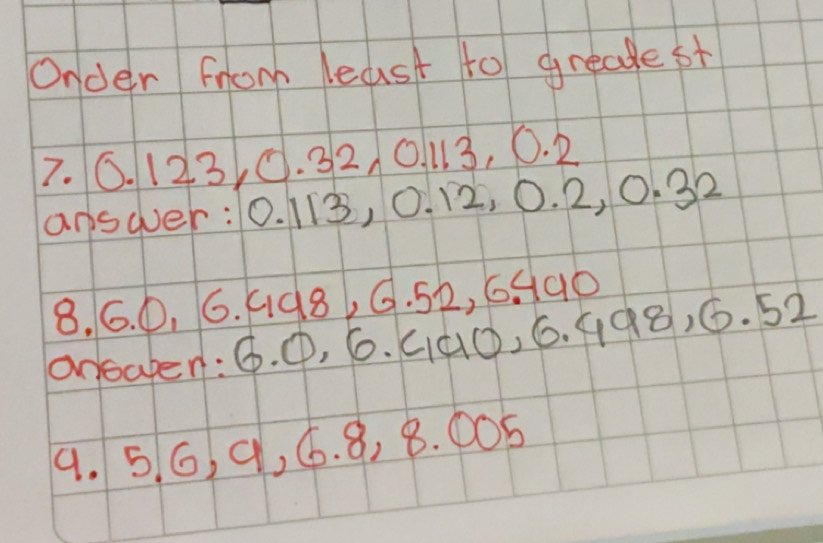 Order from least to greatest
7. 0.123, 0.32, 0.113, 0.2
answer: 0.113, 0.12, 0.2, 0.32
8. 6.0, 6.498, 6.52, 6.490
answer: 6.0, 6.490, 6.498, 6.52
9. 5.6, 9, 6.8, 8.005